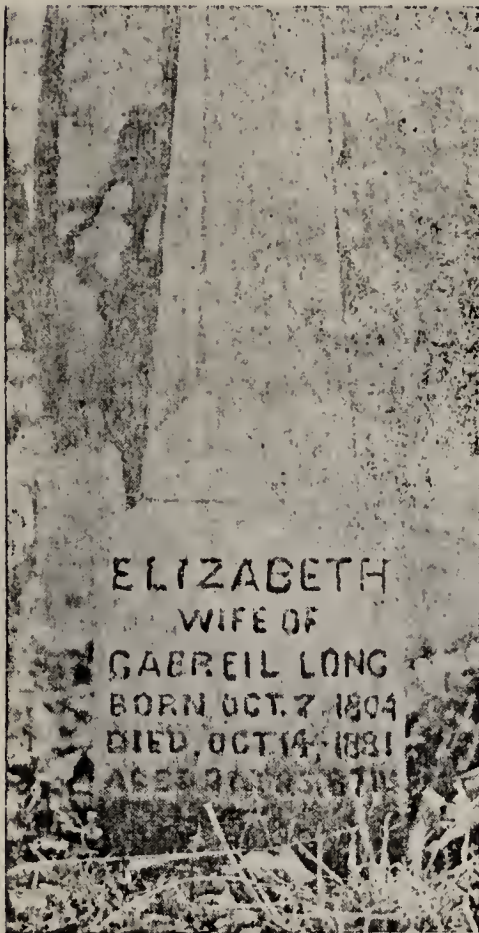 ELIZABETH
WIFE OF
GABREIL LONG
BORN OCT. 7, 1804
DIED, OCT. 14, 1881
AGED